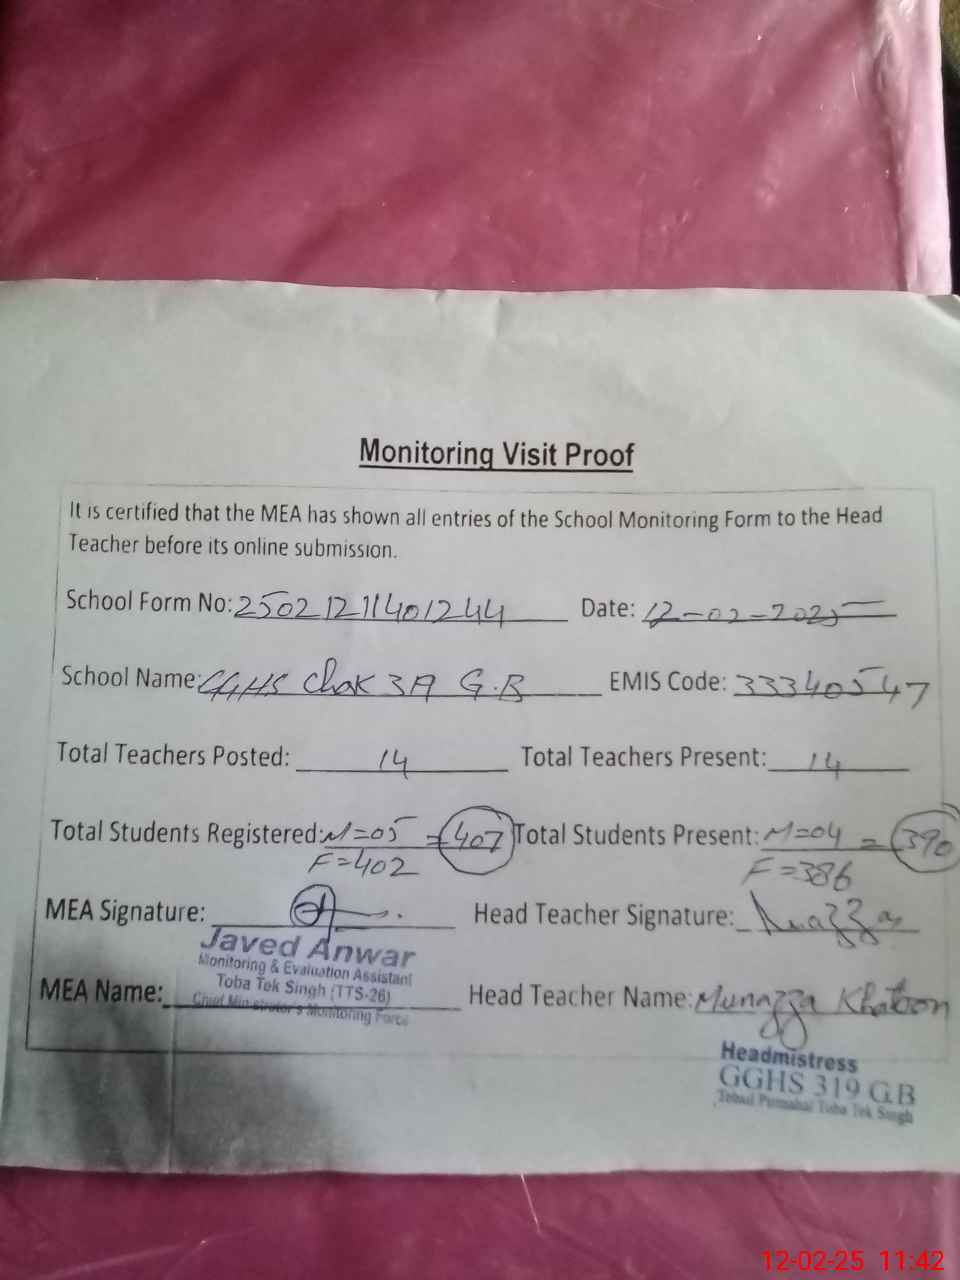 Monitoring Visit Proof
It is certified that the MEA has shown all entries of the School Monitoring Form to the Head
Teacher before its online submission.
School Form No: 25021211401244 Date: 12-02-2025
School Name: GGHS Chak 319 G.B EMIS Code: 33340547
Total Teachers Posted: 14 Total Teachers Present: 14
Total Students Registered: M=05 = 407 Total Students Present: M=04 = 390
F=402 F=386
MEA Signature: Head Teacher Signature: Munazza
Javed Anwar
Monitoring & Evaluation Assistant
Toba Tek Singh (TTS-26)
Chief Minister's Monitoring Force
MEA Name: Head Teacher Name: Munazza Khatoon
Headmistress
GGHS 319 G.B
Toba Tek Singh
12-02-25 11:42